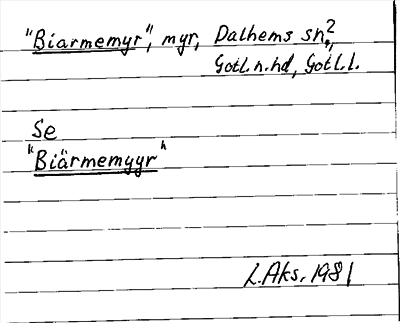 "Biarmemyr", myr, Dalhems sn²,
Gotl.n.hd, Gotl.l.
Se
"Biärmemyyr"
L.Aks. 1981